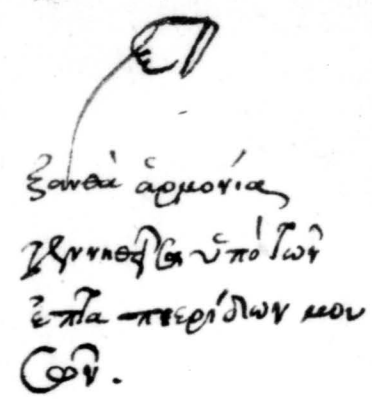 ξανθὰ ἁρμονία
γεννηθεῖσα ὑπὸ τῶν
ἑπτὰ πιερίδων μου
σῶν.